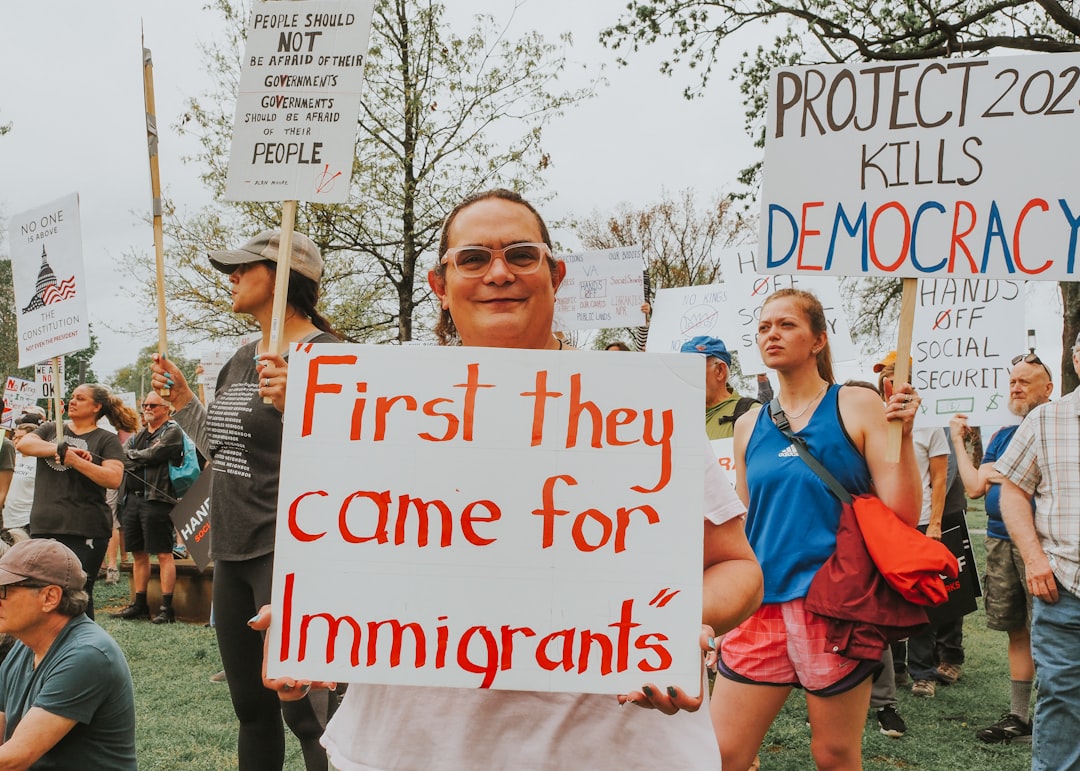 PEOPLE SHOULD
NOT
BE AFRAID OF THEIR
GOVERNMENTS
GOVERNMENTS
SHOULD BE AFRAID
OF THEIR
PEOPLE
— ALAN MOORE
NO ONE
IS ABOVE
THE
CONSTITUTION
NOT EVEN THE PRESIDENT
PROJECT 202
KILLS
DEMOCRACY
"First they
came for
Immigrants"
OUR BODIES
VA
HANDS OFF
LIBRARIES
PUBLIC LANDS
NO KINGS
HANDS
OFF
SOCIAL
SECURITY
$
adidas
NEIGHBOR
HAN
SOCI